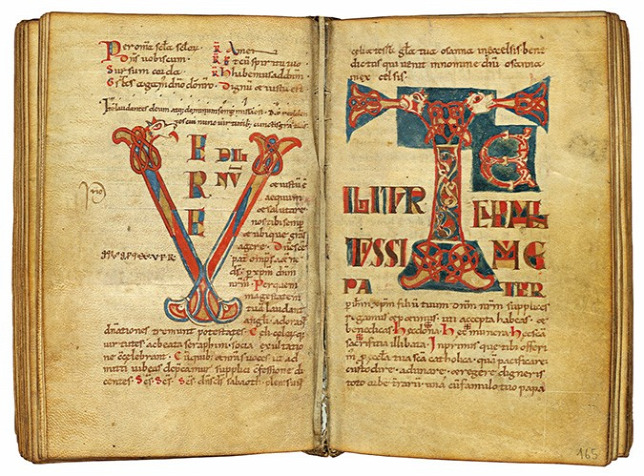 Per omnia scla sclor. R Amen
Dns vobiscum. R Et cū spiritu tuo
Sursum corda. R Habemus ad dnm
Gras agam dno do nro. Dignū et iustū est
VERE DIG NV
et iustū ē
aequum
et salutare
nos tibi semp
et ubique gras
agere. Dne sce
pat omps aetne
ds. p xpm dnm
nrm. Per quem
magestatem
tua laudant
angli. adorant
dnationes tremunt potestates. Celi celorūque
uirtutes ac beata seraphim. socia exultatio
ne cōcelebrant. Cū quib; et nras uoces ut ad
mitti iubeas depcamur supplici cfessione di
centes. Scs Scs Scs dns ds sabaoth. pleni sunt
celi et terra gla tua osanna in excelsis. bene
dictus qui uenit in nomine dni osanna
in excelsis.
TE
IGITUR CLEMEN
TISSIME
PATER
p ihm xpm filiū tuum dnm nrm supplices
rogamus et petimus. uti accepta habeas et
benedicas. Hec dona. Hec munera. Hec sca
sacrificia illibata. In primis que tibi offerim
p eccla tua sca catholica. quā pacificare
custodire. adunare. et regere digneris
toto orbe terrarū. una cū famulo tuo papa
165